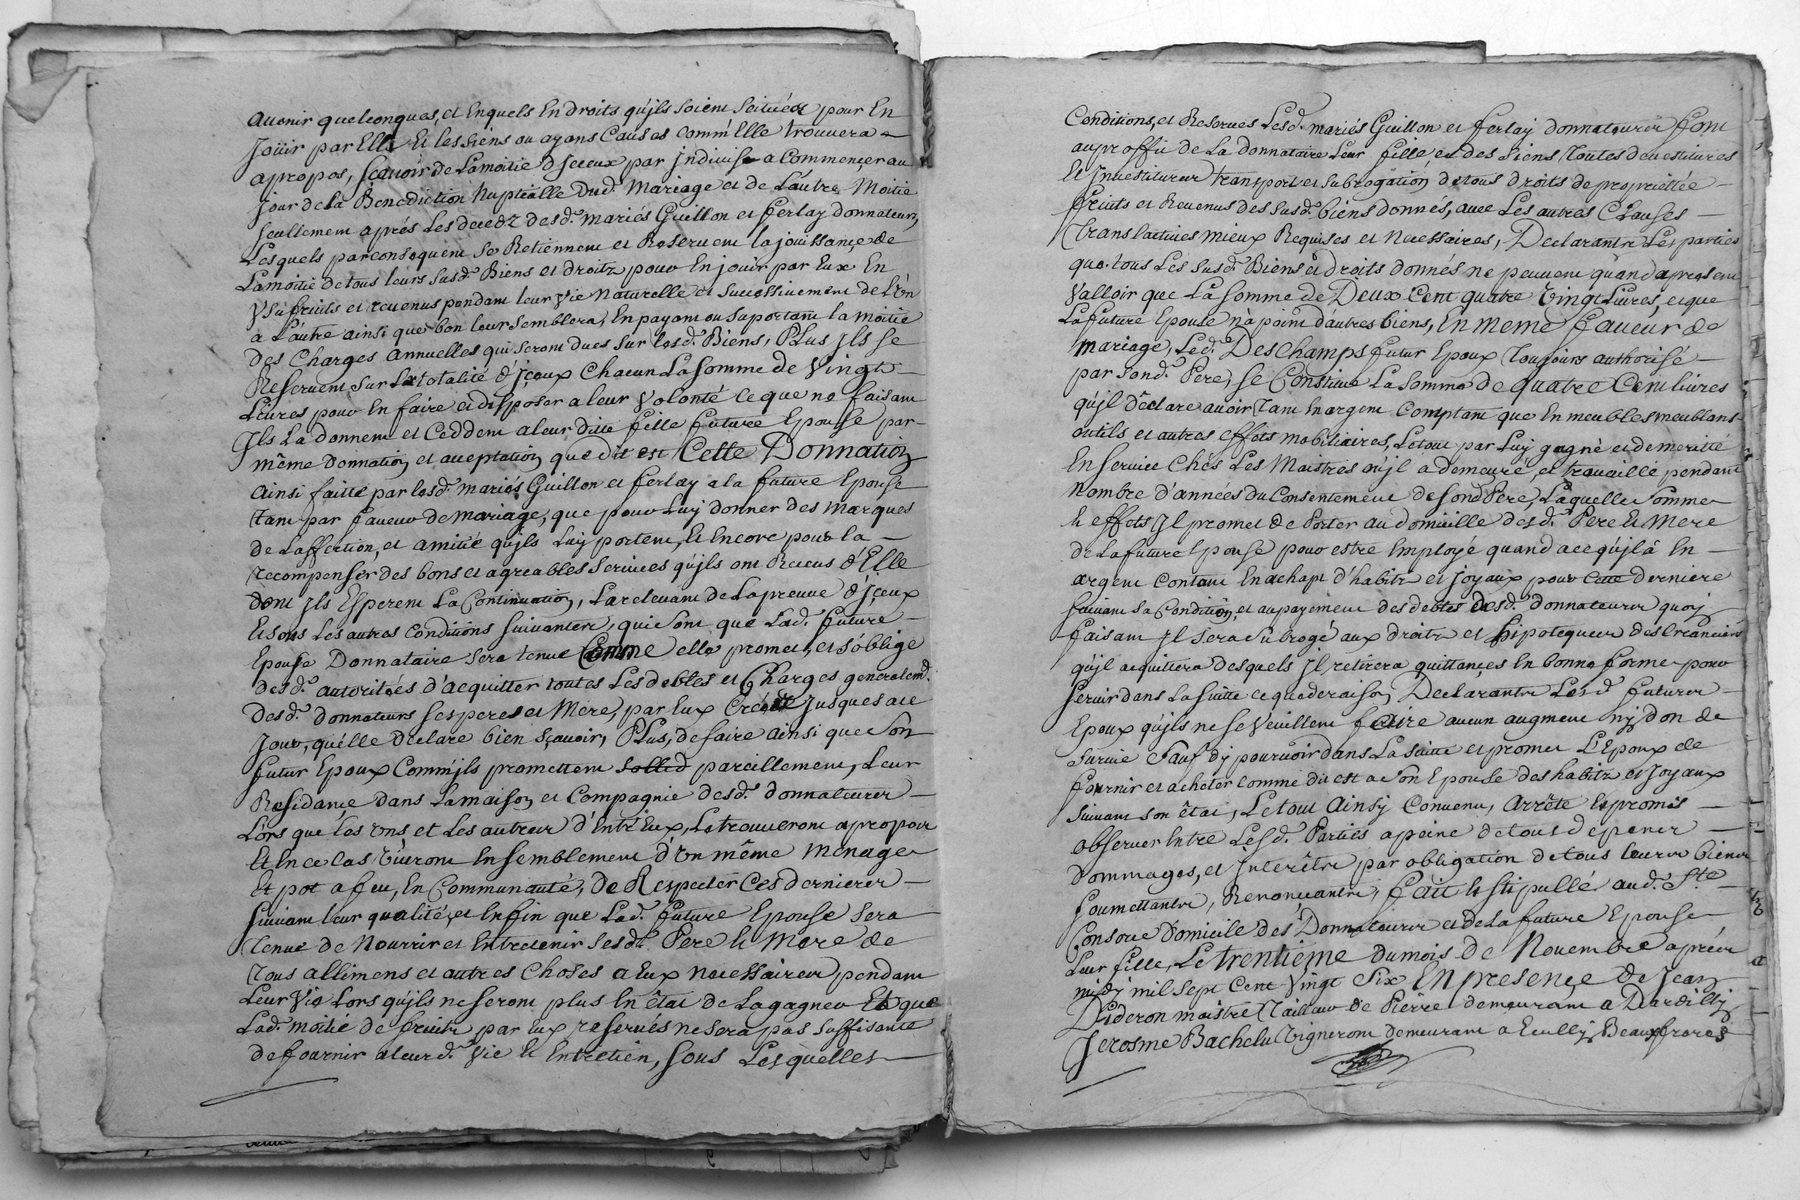 avenir quelconques, et Enquels Endroits qu'jls soient scitüés pour En
Joüir par Elle Et les siens ou ayans Causes comm'Elle trouvera a
apropos, sçavoir de La moitié d'Jceux par jndivise a Commençer au
jour de la Benediction Nuptiälle Dud. Mariage et de L'autre Moitié
seullement aprés Les decedz desd. Mariés Guillon et ferlay donnateurs,
Lesquels par consequent se Retiennent et Reservent la jouissançe de
La moitié de tous leurs susd. Biens et droitz pour En jouir par Eux En
Vsufruits et revenus pendant leur Vie Naturelle et successivement de L'ün
a L'autre ainsi que bon leur semblera, En payant ou suportant la moitié
des Charges annuelles qui seront dues sur lesd. Biens, PLus Jls se
Reservent sur La totalité d'jçeux Chacun La somme de Vingt
Livres pour En faire et disposer a leur Volonté Ce que ne faisant
Jls La donnent et Ceddent a leur ditte fille future Epouse par
même Donnation et acceptation que dit est Cette Donnation
Ainsi faitte par lesd. mariés Guillon et ferlay a la future Epouse
tant par faveur de mariage, que pour Luy donner des Marques
de Laffection, et amitié qu'jls Luy portent, Et Encore pour la
recompenser des bons et agreables services qu'jls ont Recus d'Elle
dont jls Esperent La Continuation, La relevant de La preuve d'jçeux
Et sous Les autres Conditions suivantes, qui sont que Lad. future
Epouse Donnataire sera tenue Comme elle promet, et s'oblige
desd. autorités d'acquitter toutes Les debtes et Charges generalem.
desd. donnateurs ses pere et Mere, par Eux Créés Jusques a ce
Jour, qu'elle declare bien sçavoir, PLus, de faire ainsi que son
futur Epoux Comm'jls promettent solled pareillement, Leur
Residançe dans La maison et Compagnie desd. donnateurs
Lors que les vns et Les autres d'Entr'Eux, Le trouveront a propos
Et En ce Cas vivront Ensemblement d'vn même menage
Et pot a feu, En Communauté, de Respecter Ces derniers
suivant leur qualité, et Enfin que Lad. future Epouse sera
tenue de Nourrir et Entretenir sesd. Pere Et Mere de
tous allimens et autres Choses a Eux necessaires pendant
Leur Vie Lors qu'jls ne seront plus En êtat de La gagner Et que
Lad. moitié de fruits par Eux reservés ne sera pas suffisante
de fournir a leurd. Vie Et Entretien, sous Lesquelles
Conditions, et Reserves Lesd. mariés Guillon et ferlay donnateurs font
au proffit de La donnataire Leur fille et des siens toutes devestitures
Et jnvestitures transport et subrogation de tous droits de proprietée
fruits et Revenus des susd. biens donnés, avec Les autres Clauses
translatives mieux Requises et Necessaires, Declarants Les parties
que tous Les susd. Biens et droits donnés ne peuvent quand a present
Valloir que La somme de Deux Cent quatre Vingt Livres, et que
La future Epouse n'a point d'autres biens, En Meme faveur de
mariage, Led. DesChamps futur Epoux toujours authorisé
par sond. Pere, se Constitue La somme de quatre Cent livres
qu'jl déclare avoir tant En argent Comptant que En meubles meublans
outils et autres effets mobiliaires, Le tout par Luy gagné et demerité
En service Chés Les Maistres ou jl a demeuré, et travaillé pendant
Nombre d'années du Consentement de sond Pere, Laquelle somme
Et effets Jl promet de Porter au domicille desd. Pere Et Mere
de La future Epouse pour estre Employé quand a ce qu'jl à En
argent contant En achapt d'habits et joyaux pour Cette derniere
suivant sa Condition, et au payement des debtes desd. donnateurs quoy
faisant Jl sera subrogé aux droits et hipoteques des Creanciers
qu'jl acquittera desquels Jl retirera quittances En bonne forme pour
servir dans La suitte ce que de raison, Declarants Lesd. futurs
Epoux qu'jls ne se Veuillent faire aucun augment nÿ don de
survie sauf d'y pourvoir dans La suitte et promet L'Epoux de
fournir et acheter Comme dit est a son Epouse des habits et Joyaux
suivant son êtat, Le tout Ainsy Convenu, Arrété Et promis
observer Entre Lesd. Parties a peine de tous depens
dommages, et jnterêts par obligation de tous leurs biens
soumettants, Renonçants, fait Et stipullé aud. Ste
Consorce Domicile des Donnateurs et de La future Epouse
Leur fille, Le trentième du mois de Novembre aprés
midÿ mil sept Cent Vingt Six En presence de Jean
Dideron maistre Tailleur de Pierre demeurant a Dardilly
Jerosme Bachelu Vigneron demeurant a Ecully, Beaux freres